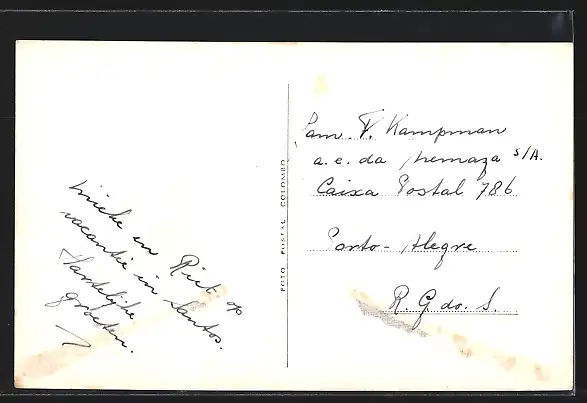 Mieke en Riet op
vacantie in Santos.
Hartelijke
groeten.
FOTO POSTAL COLOMBO
Fam. V. Kampman
a.c. da S/A.
Caixa Postal 786
Porto-Alegre
R. G. do. S.